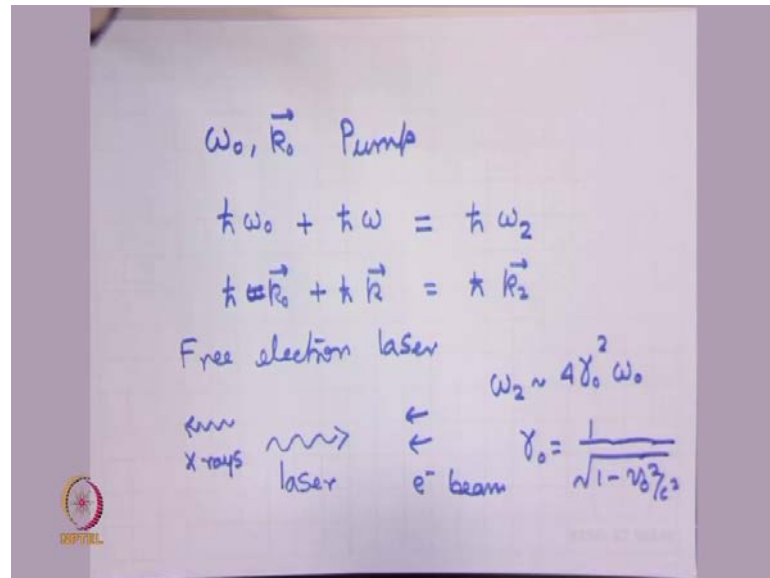 ω₀, k⃗₀ Pump
ħω₀ + ħω = ħω₂
ħk⃗₀ + ħk⃗ = ħk⃗₂
Free electron laser
ω₂ ~ 4γ₀²ω₀
x-rays laser e⁻ beam γ₀ = 1/√(1 - v₀²/c²)
NPTEL